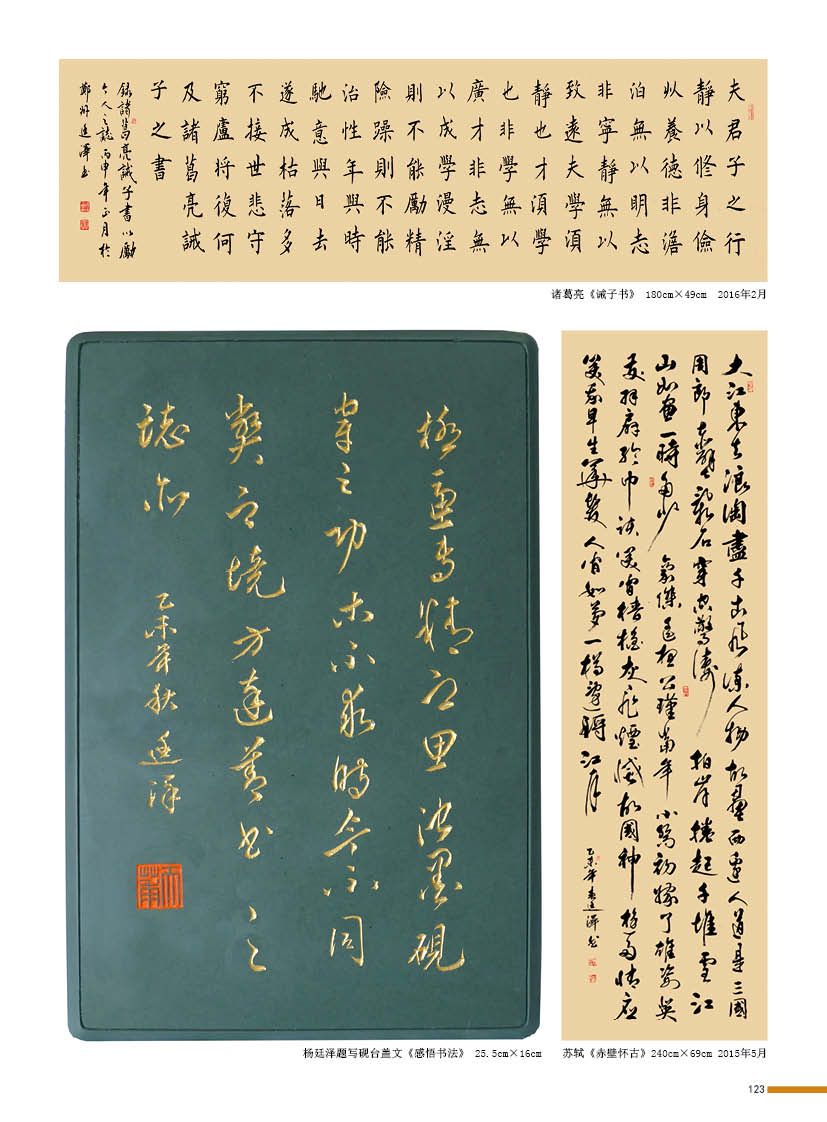 夫君子之行
靜以修身儉
以養德非澹
泊無以明志
非寧靜無以
致遠夫學須
靜也才須學
也非學無以
廣才非志無
以成學漫淫
則不能勵精
險躁則不能
治性年與時
馳意與日去
遂成枯落多
不接世悲守
窮廬將復何
及諸葛亮誡
子之書
錄諸葛亮誡子書以勵
今人之誌丙申年正月於
鄭州廷澤書
诸葛亮《诫子书》 180cm×49cm 2016年2月
精之思墨硯
之功不時今不同
之境方達書之
誌
乙未年秋廷澤
杨廷泽题写砚台盖文《感悟书法》 25.5cm×16cm
大江東去浪淘盡千古風流人物故壘西邊人道是三國
周郎赤壁亂石穿空驚濤拍岸捲起千堆雪江
山如畫一時多少豪傑遥想公瑾當年小喬初嫁了雄姿英
發羽扇綸巾談笑間檣櫓灰飛煙滅故國神遊多情應
笑我早生華髮人間如夢一樽還酹江月
乙未年春廷澤書
苏轼《赤壁怀古》240cm×69cm 2015年5月
123